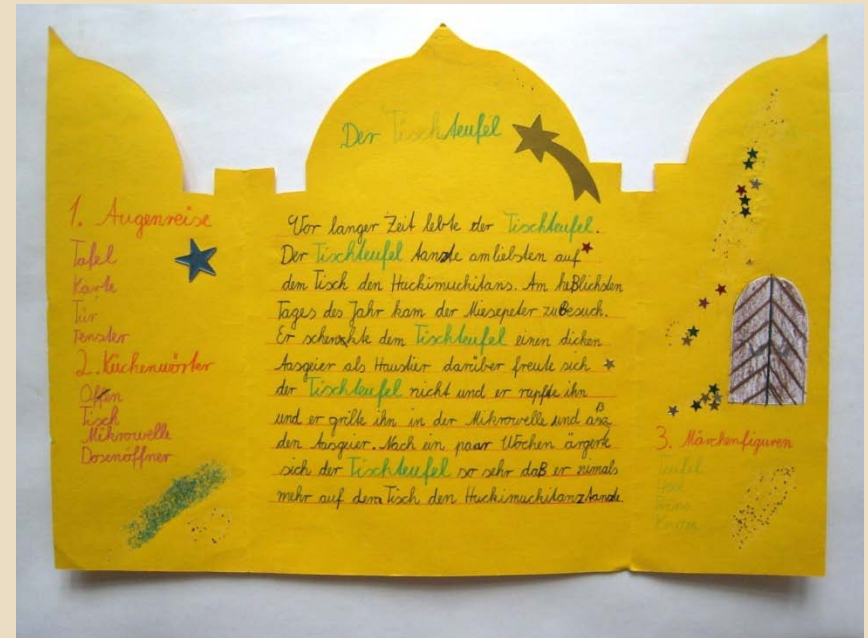 Der Tischteufel
1. Augenreise
Tafel
Karte
Tür
Fenster
2. Küchenwörter
Offen
Tisch
Mikrowelle
Dosenöffner
Vor langer Zeit lebte der Tischteufel.
Der Tischteufel tanzte am liebsten auf
dem Tisch den Huckimuckitans. Am häßlichsten
Tages des Jahr kam der Miesepeter zu Besuch.
Er schenkte dem Tischteufel einen dicken
Aasgeier als Haustier darüber freute sich
der Tischteufel nicht und er rupfte ihn
und er grilte ihn in der Mikrowelle und aß
den Aasgeier. Nach ein paar Wochen ärgerte
sich der Tischteufel so sehr daß er niemals
mehr auf dem Tisch den Huckimuckitanz tanzte.
3. Märchenfiguren
Teufel